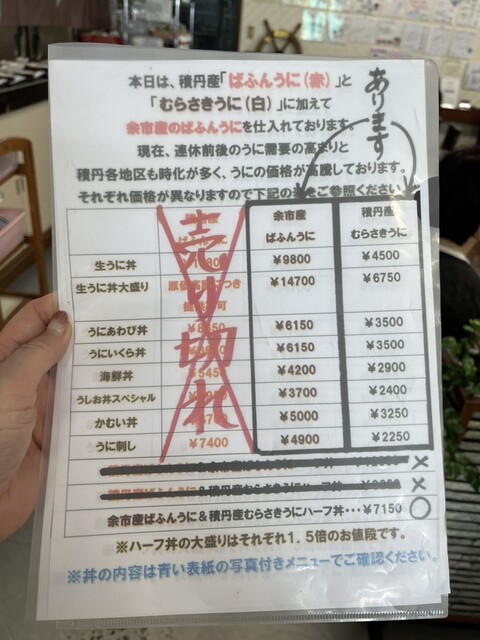 本日は、積丹産「ばふんうに（赤）」と
「むらさきうに（白）」に加えて
余市産のばふんうにを仕入れております。
現在、連休前後のうに需要の高まりと
積丹各地区も時化が多く、うにの価格が高騰しております。
それぞれ価格が異なりますので下記の表をご参照ください。
あります
売り切れ
余市産 積丹産
ばふんうに むらさきうに
生うに丼 ¥9800 ¥4500
生うに丼大盛り ¥14700 ¥6750
うにあわび丼 ¥6150 ¥3500
うにいくら丼 ¥6150 ¥3500
海鮮丼 ¥4200 ¥2900
うしお丼スペシャル ¥3700 ¥2400
かむい丼 ¥5000 ¥3250
うに刺し ¥7400 ¥4900 ¥2250
×
×
余市産ばふんうに＆積丹産むらさきうにハーフ丼・・・¥7150 ○
※ハーフ丼の大盛りはそれぞれ1．5倍のお値段です。
※丼の内容は青い表紙の写真付きメニューでご確認ください。